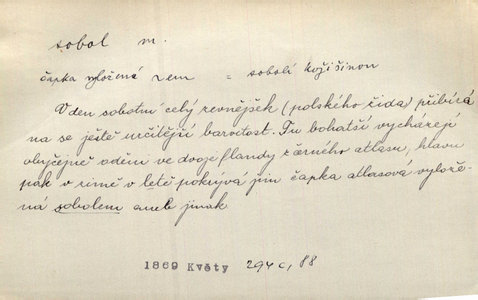 sobol m.
čapka vyložená sem = sobolí kožišinou
V den sobotní celý zevnějšek (polského žida) přibírá
na se ještě určitější barvitost. Tu bohatší vycházejí
obyčejně oděni ve dvoje flandy z černého atlasu, hlavu
pak v zimě v létě pokrývá jim čapka atlasová vylože-
ná sobolem aneb jinak
1869 Květy 294 c, 88